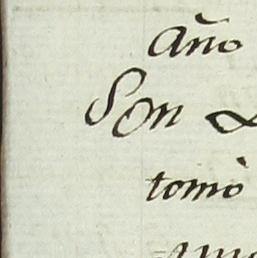 año
Son
tomó